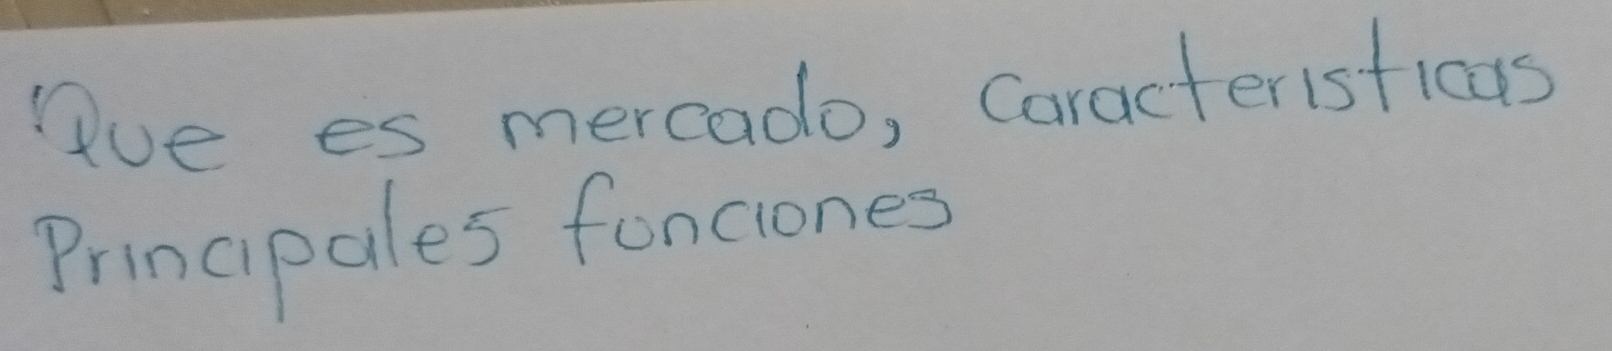 Que es mercado, Caracteristicas
Principales funciones